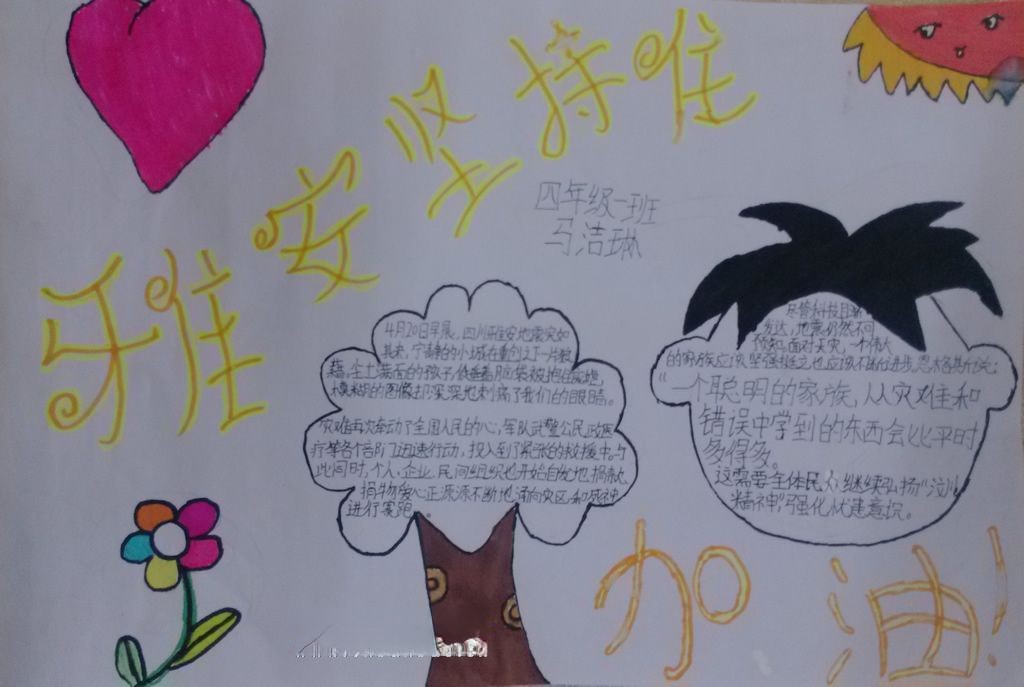 雅安坚持住
四年级一班
马洁琳
4月20日早晨，四川雅安地震突如
其来，宁静的小城在重创之下一片狼
藉，尘土
模糊的图像却深深地刺痛了我们的眼睛。
灾难再次牵动了全国人民的心，军队武警公民政医
疗等各个部门迅速行动，投入到了紧张的救援中。与
此同时，个人、企业、民间组织也开始自发地捐款
捐物爱心正源源不断地涌向灾区，和死神
进行赛跑。
尽管科技日新
发达，地震仍然不可
预知，面对天灾，一个伟大
的家族应该坚强挺立也应该不断的进步，恩格斯说：
“一个聪明的家族，从灾难和
错误中学到的东西会比平时
多得多。
这需要全体民众继续弘扬“汶川
精神”，强化从建意识。
加油！